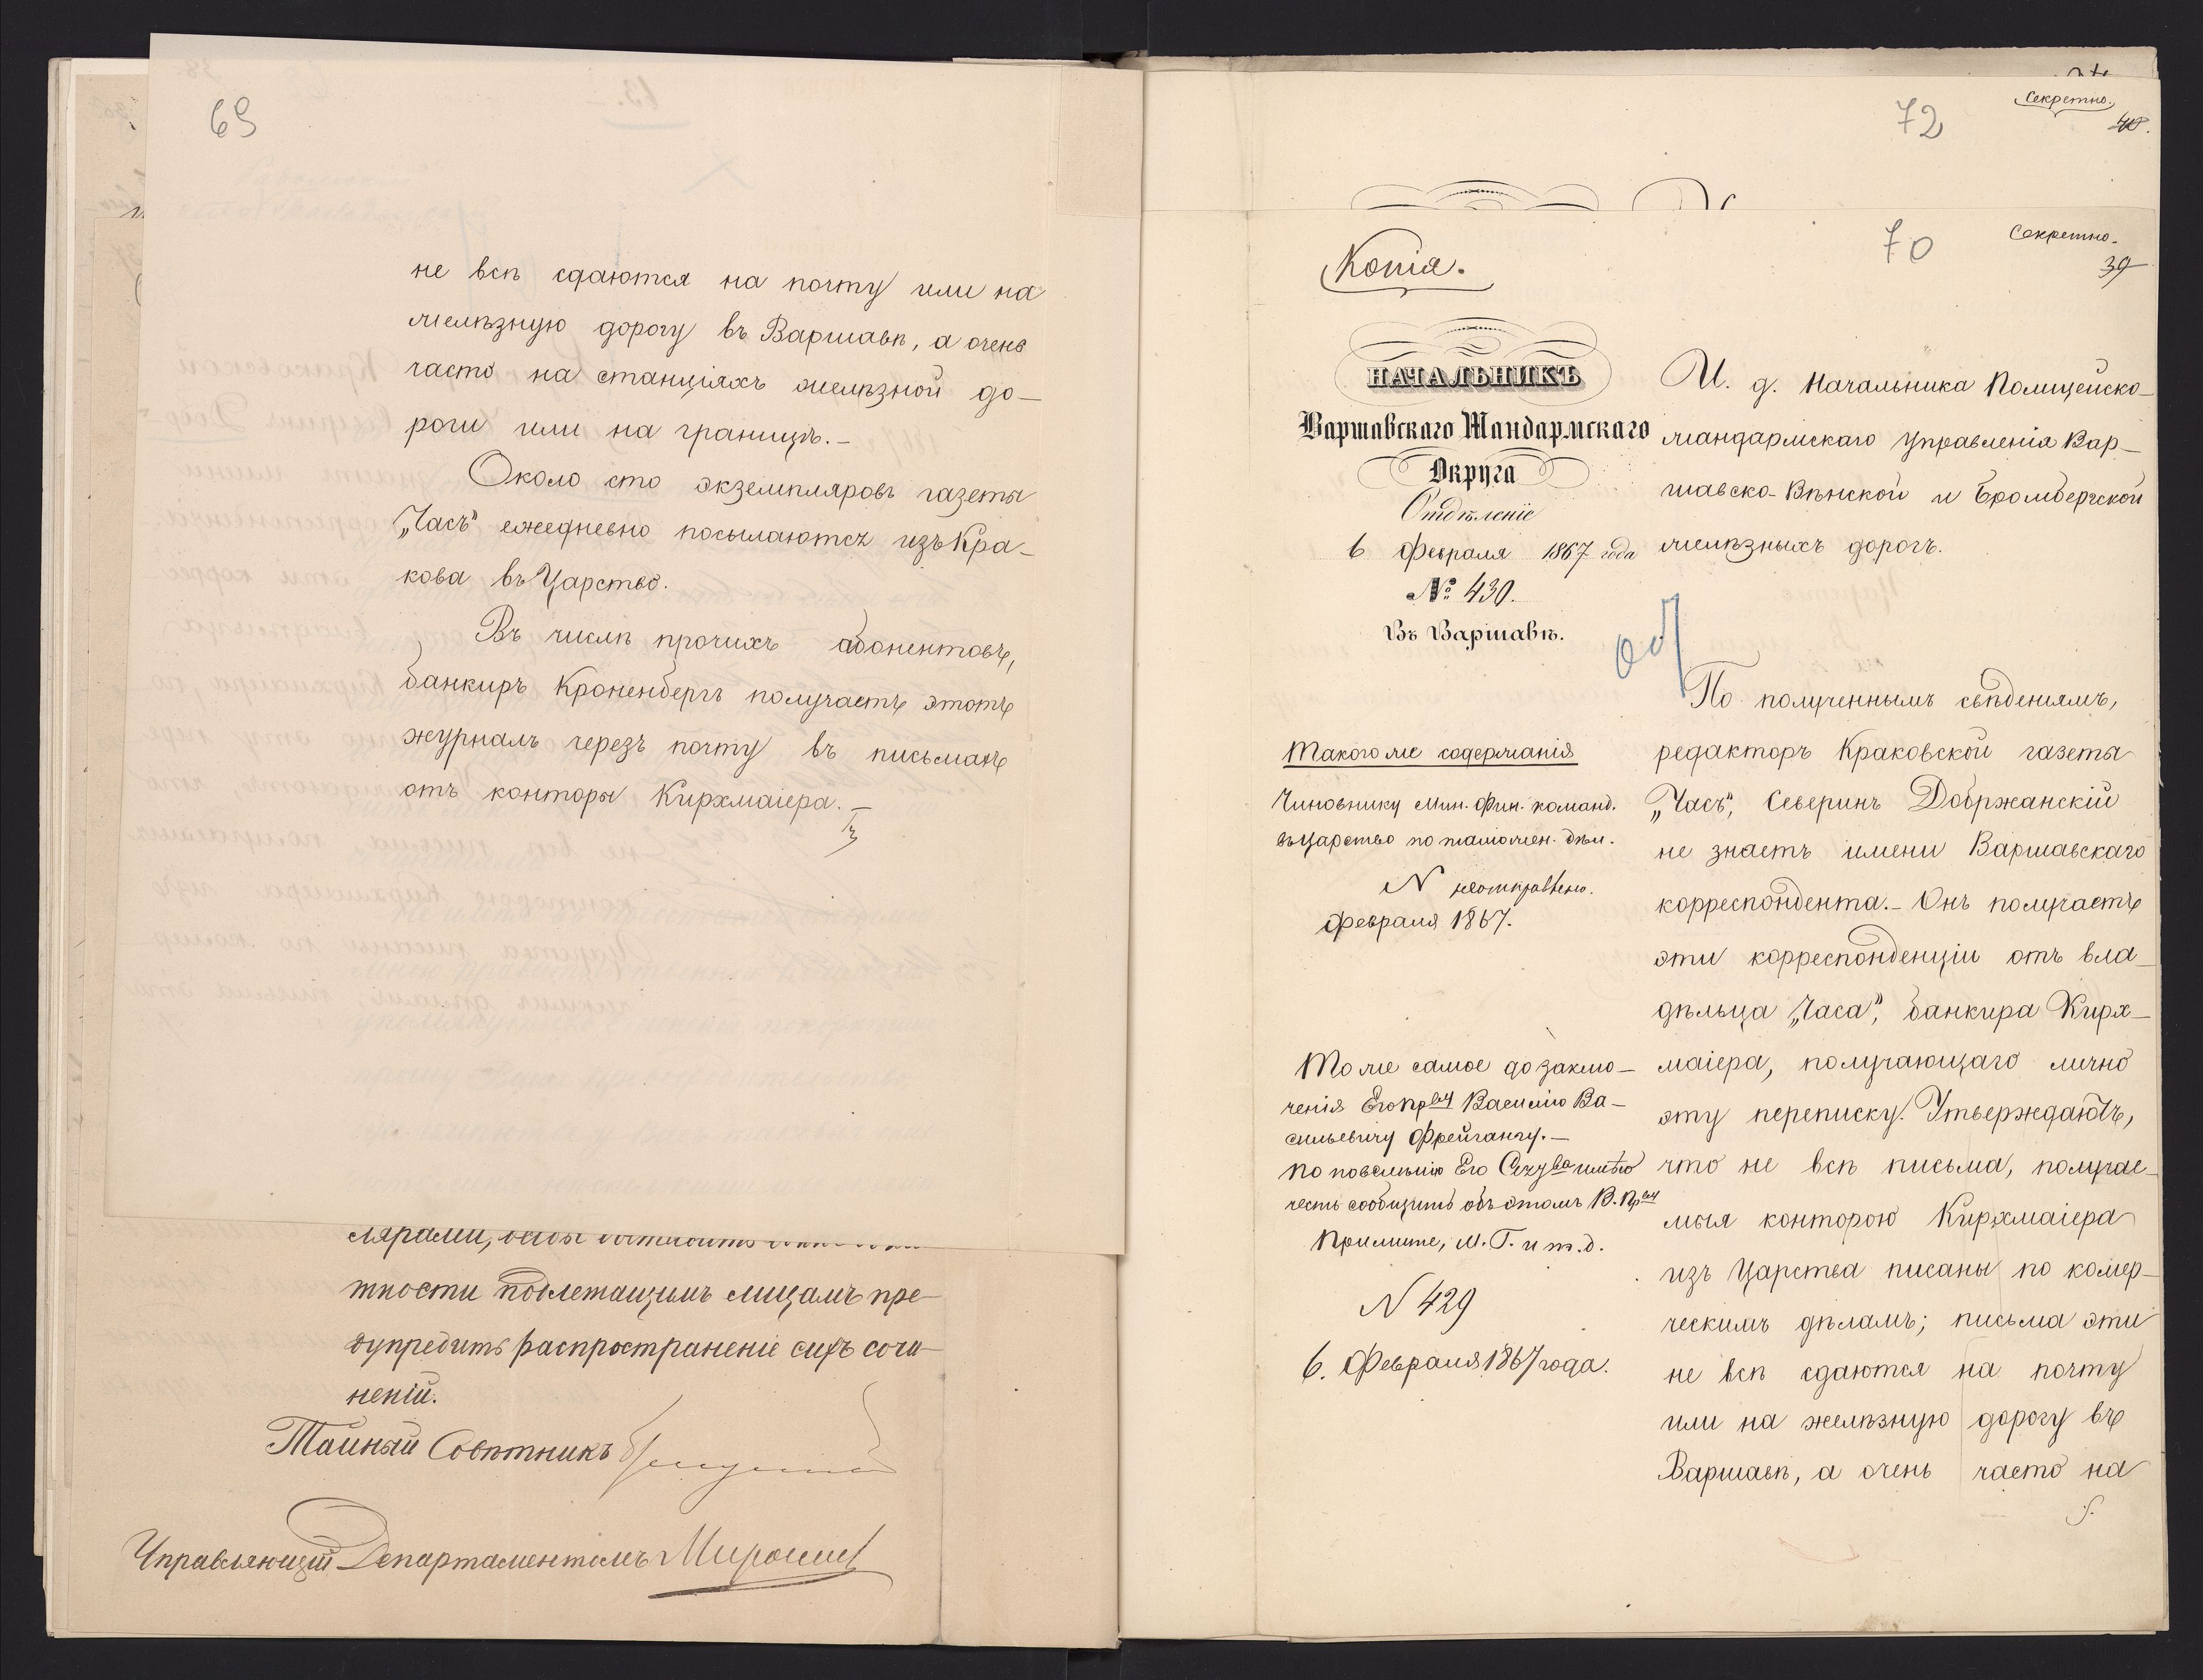 69
не всѣ сдаются на почту или на
желѣзную дорогу въ Варшавѣ, а очень
часто на станціяхъ желѣзной до-
роги или на границѣ.-
Около сто экземпляровъ газеты
„Часъ" ежедневно посылаются изъ Кра-
кова въ Царство.
Въ числѣ прочихъ абонентовъ,
банкиръ Кроненбергъ получаетъ этотъ
журналъ черезъ почту въ письмахъ
отъ конторы Кирхмаіера.-
тности подлежащимъ лицамъ пре-
дупредить распространеніе сихъ сочи-
неній.
Тайный Совѣтникъ
Управляющій Департаментомъ
72
Секретно.
40.
70
Секретно.
39
Копія.
НАЧАЛЬНИКЪ
Варшавскаго Жандармскаго
Округа
Отдѣленіе
6 Февраля 1867 года
№ 430.
Въ Варшавѣ.
Такого же содержанія
Чиновнику Мин. Фин. команд.
въ Царство по таможен. дѣл.
N неотправлено.
Февраля 1867.
Тоже самое до заклю-
ченія Его Прву Василію Ва-
сильевичу Фрейгангу.-
По повелѣнію Его Сіят-ва имѣю
честь сообщить объ этомъ В. Прву
Примите, М. Г. и т. д.
N 429
6. Февраля 1867 года.
И. д. Начальника Полицейско-
жандармскаго Управленія Вар-
шавско-Вѣнской и Бромбергской
желѣзныхъ дорогъ.
По полученнымъ свѣдениямъ,
редакторъ Краковской газеты
„Часъ", Северинъ Добржанскій
не знаетъ имени Варшавскаго
корреспондента.- Онъ получаетъ
эти корреспонденціи отъ вла-
дѣльца „Часа", банкира Кирх-
маіера, получающаго лично
эту переписку. Утверждаютъ,
что не всѣ письма, получае-
мыя конторою Кирхмаіера
изъ Царства писаны по комер-
ческимъ дѣламъ; письма эти
не всѣ сдаются на почту
или на желѣзную дорогу въ
Варшавѣ, а очень часто на